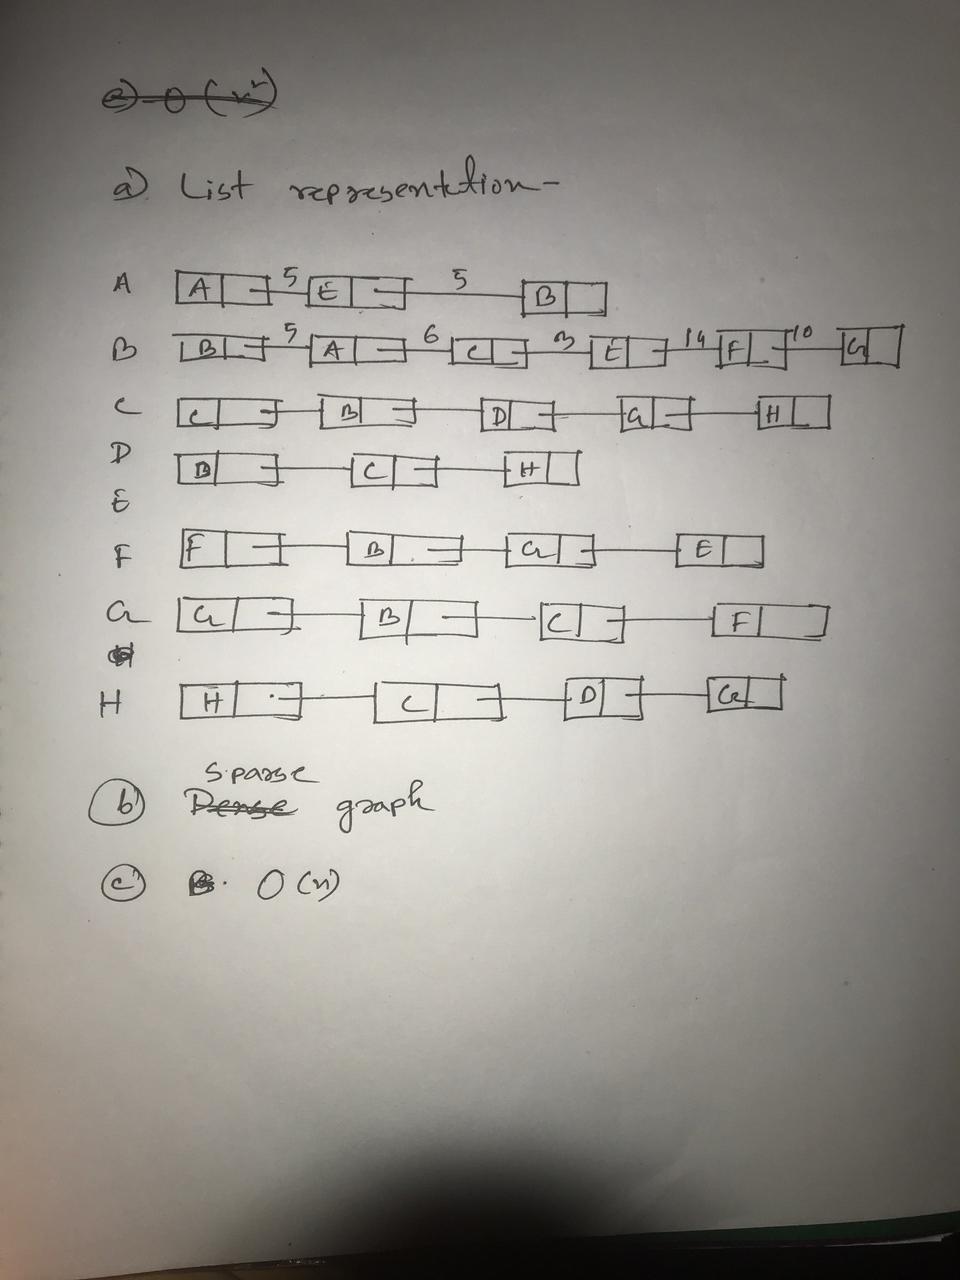 a) List representation-
A A 5 E 5 B
B B 5 A 6 C 3 E 14 F 10 G
C C B D G H
D B C H
E
F F B G E
G G B C F
H H C D G
Sparse
b) Dense graph
c) O(n)